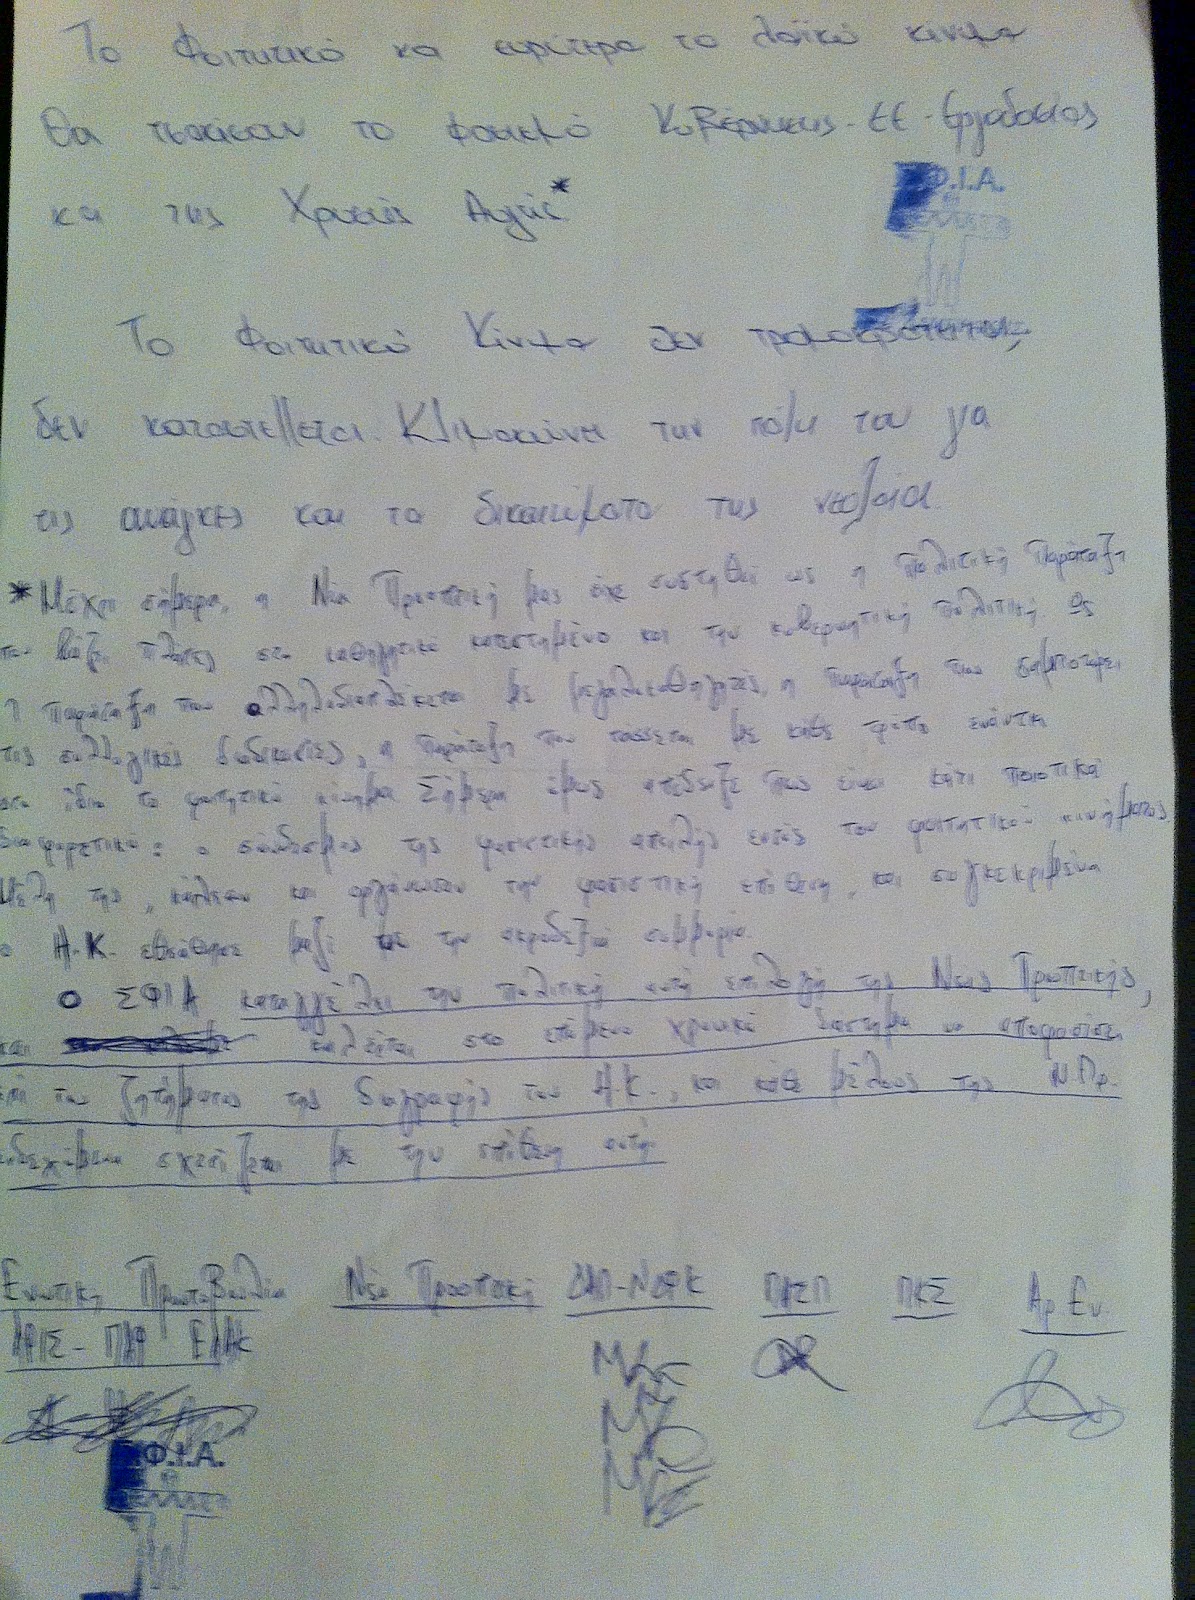 Το Φοιτητικό και ευρύτερα το λαϊκό κίνημα
θα τσακίσουν το φασισμό Κυβέρνησης - ΕΕ - Εργοδοσίας
και της Χρυσής Αυγής*
Φ.Ι.Α.
Το Φοιτητικό Κίνημα δεν τρομοκρατείται,
δεν καταστέλλεται. Κλιμακώνει την πάλη του για
τις ανάγκες και τα δικαιώματα της νεολαίας.
*Μέχρι σήμερα, η Νέα Προοπτική μας είχε συστηθεί ως η πολιτική παράταξη
που βάζει πλάτες στο καθηγητικό κατεστημένο και την κυβερνητική πολιτική. Ως
η παράταξη που αλληλοδιαπλέκεται με μεγαλοκαθηγητές, η παράταξη που σαμποτάρει
τις συλλογικές διαδικασίες, η παράταξη που τάσσεται με κάθε τρόπο ενάντια
στο ίδιο το φοιτητικό κίνημα. Σήμερα όμως απέδειξε πως είναι κάτι ποιοτικά
διαφορετικό: ο σύνδεσμος της φασιστικής απειλής εντός του φοιτητικού κινήματος.
Μέλη της, κάλεσαν και οργάνωσαν την φασιστική επίθεση, και συγκεκριμένα
ο Α.Κ. εθεάθηκε μαζί με την ακροδεξιά συμμορία.
Ο ΣΦΙΑ καταγγέλει την πολιτική αυτή επιλογή της Νέας Προοπτικής,
και καλείται στο επόμενο χρονικό διάστημα να αποφασίσει
επί του ζητήματος της διαγραφής του Α.Κ., και κάθε μέλους της Ν.Πρ.
ενδεχόμενα σχετίζεται με την επίθεση αυτή.
Ενωτική Πρωτοβουλία Νέα Προοπτική ΔΑΠ-ΝΔΦΚ ΠΑΣΠ ΠΚΣ Αρ.Εν.
ΑΡΙΣ - ΠΑΦ ΕΑΑΚ
Φ.Ι.Α.